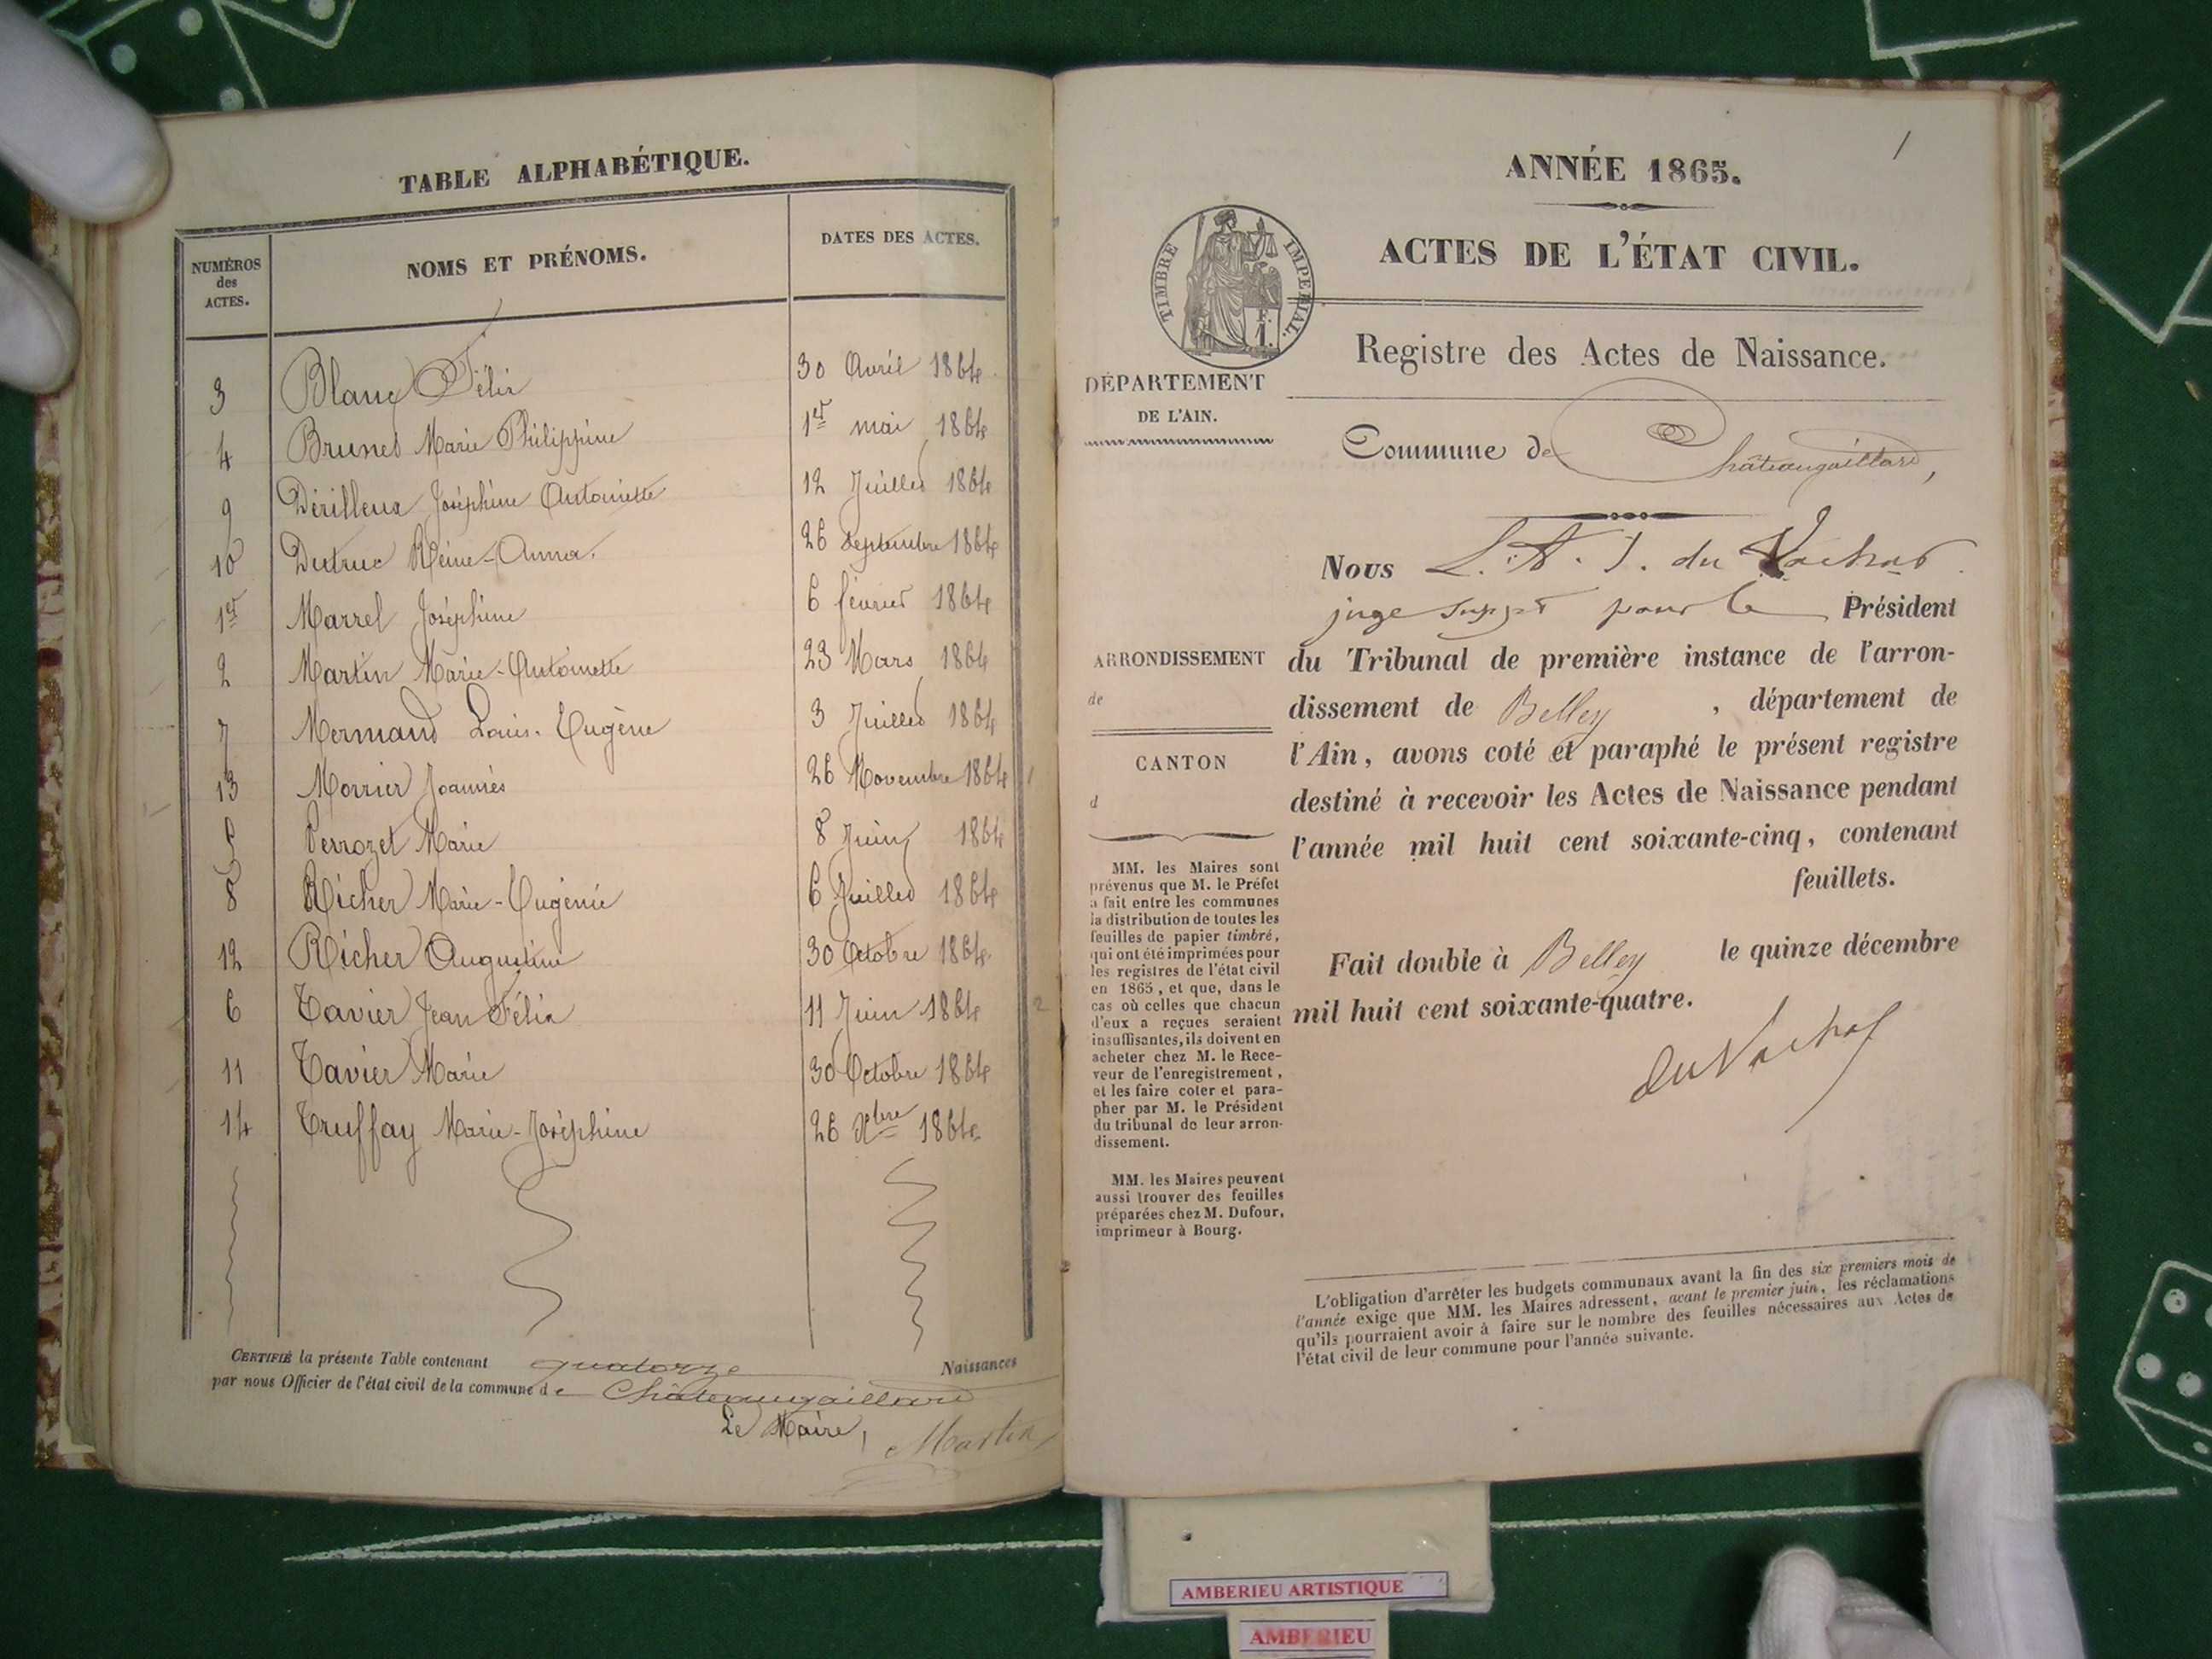 TABLE ALPHABÉTIQUE.
NUMÉROS des ACTES.
NOMS ET PRÉNOMS.
DATES DES ACTES.
3 Blanc Félix 30 Avril 1864
4 Brunet Marie Philippine 1er mai 1864
9 Dérilleux Joséphine Antoinette 12 Juillet 1864
10 Dutruc Reine-Anna. 26 Septembre 1864
1er Marrel Joséphine 6 février 1864
2 Martin Marie-Antoinette 23 Mars 1864
7 Mermand Louis-Eugène 3 Juillet 1864
13 Morrier Joannès 26 Novembre 1864
5 Perrozet Marie 8 Juin 1864
8 Richer Marie-Eugénie 6 Juillet 1864
12 Richer Augustine 30 Octobre 1864
6 Tavier Jean Félix 11 Juin 1864
11 Tavier Marie 30 Octobre 1864
14 Truffay Marie-Joséphine 26 Xbre 1864
CERTIFIÉ la présente Table contenant quatorze Naissances
par nous Officier de l'état civil de la commune de Châteaugaillard
Le Maire,
Martin
1
ANNÉE 1865.
TIMBRE IMPERIAL.
ACTES DE L'ÉTAT CIVIL.
Registre des Actes de Naissance.
DÉPARTEMENT
DE L'AIN.
Commune de Châteaugaillard,
Nous L. A. J. du Vachat
juge suppt pour le Président
du Tribunal de première instance de l'arron-
dissement de Belley , département de
l'Ain, avons coté et paraphé le présent registre
destiné à recevoir les Actes de Naissance pendant
l'année mil huit cent soixante-cinq, contenant
feuillets.
Fait double à Belley le quinze décembre
mil huit cent soixante-quatre.
du Vachat
ARRONDISSEMENT
de
CANTON
d
MM. les Maires sont
prévenus que M. le Préfet
a fait entre les communes
la distribution de toutes les
feuilles de papier timbré,
qui ont été imprimées pour
les registres de l'état civil
en 1865, et que, dans le
cas où celles que chacun
d'eux a reçues seraient
insuffisantes, ils doivent en
acheter chez M. le Rece-
veur de l'enregistrement,
et les faire coter et para-
pher par M. le Président
du tribunal de leur arron-
dissement.
MM. les Maires peuvent
aussi trouver des feuilles
préparées chez M. Dufour,
imprimeur à Bourg.
L'obligation d'arrêter les budgets communaux avant la fin des six premiers mois de
l'année exige que MM. les Maires adressent, avant le premier juin, les réclamations
qu'ils pourraient avoir à faire sur le nombre des feuilles nécessaires aux Actes de
l'état civil de leur commune pour l'année suivante.
AMBERIEU ARTISTIQUE
AMBERIEU